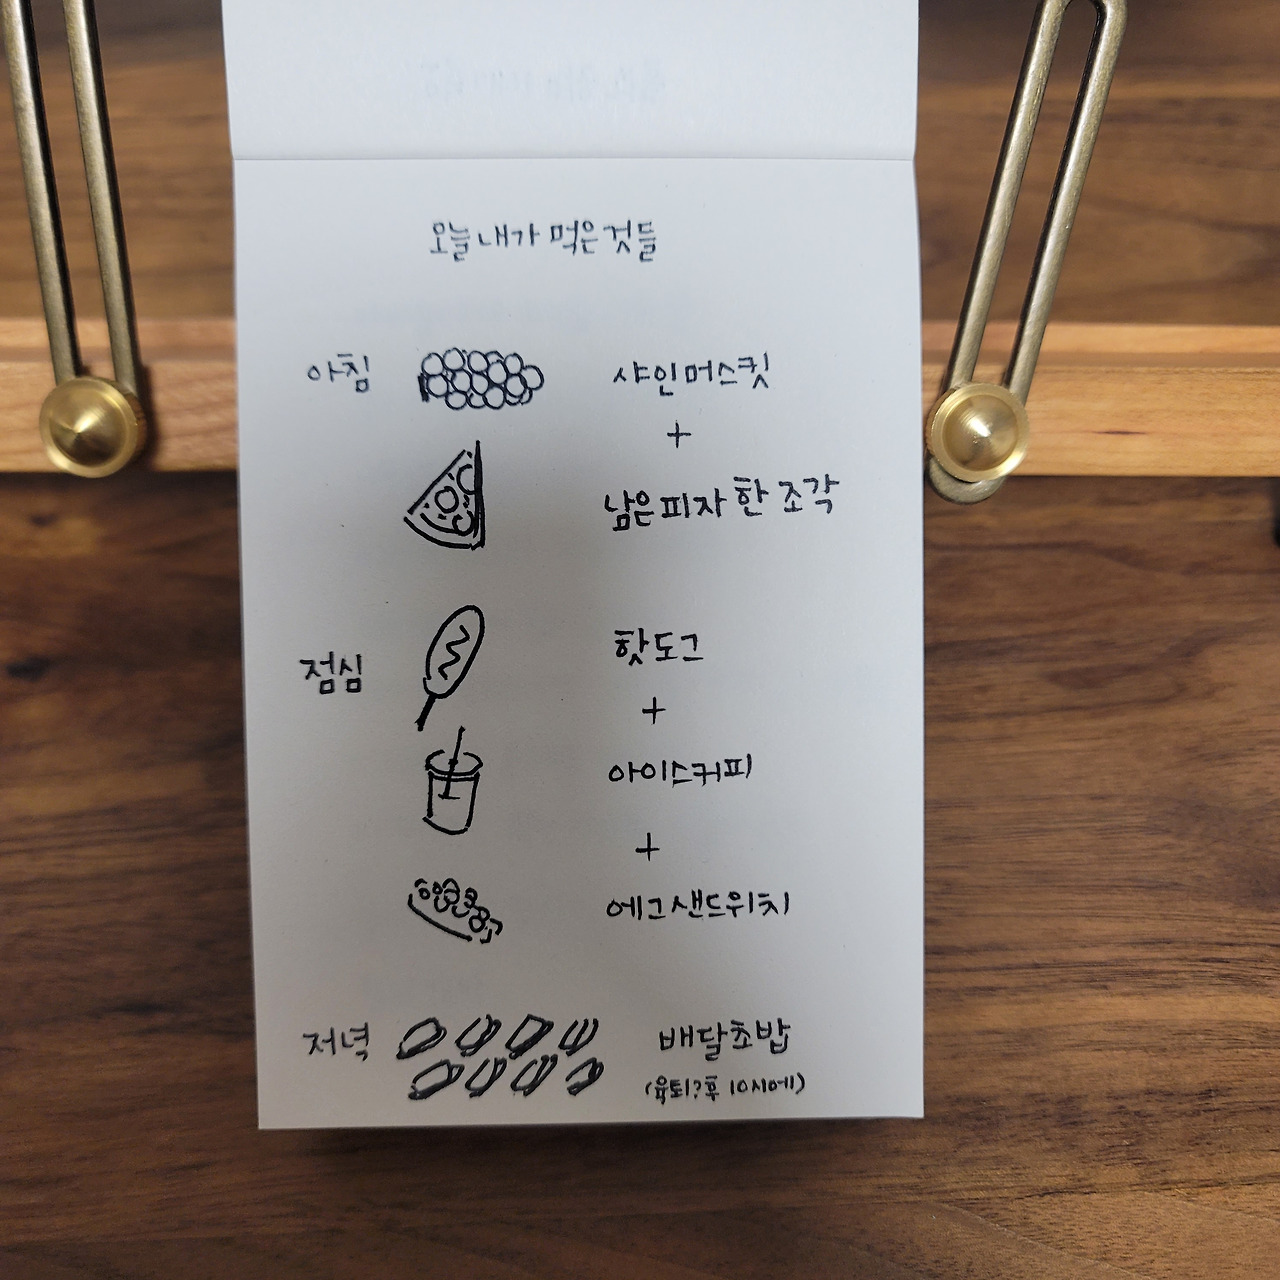 오늘 내가 먹은 것들
아침 샤인머스킷
+
남은 피자 한 조각
점심 핫도그
+
아이스커피
+
에그샌드위치
저녁 배달초밥
(육퇴?후 10시에)